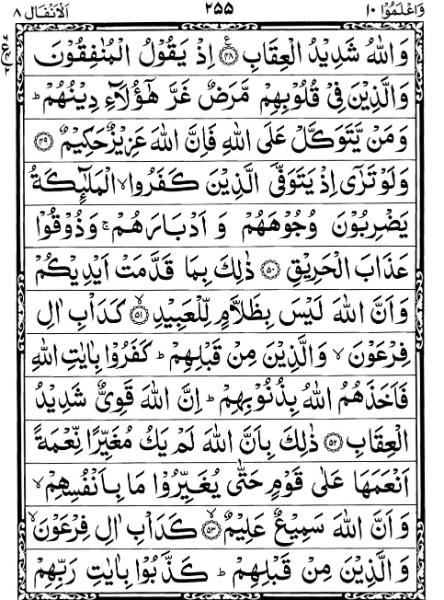 وَاعْلَمُوْٓا ١٠ ٢٥٥ اَلْاَنْفَال ٨
وَاللّٰهُ شَدِيْدُ الْعِقَابِ ﴿٤٨﴾ اِذْ يَقُوْلُ الْمُنٰفِقُوْنَ
وَالَّذِيْنَ فِيْ قُلُوْبِهِمْ مَّرَضٌ غَرَّ هٰٓؤُلَآءِ دِيْنُهُمْ ؕ
وَمَنْ يَّتَوَكَّلْ عَلَى اللّٰهِ فَاِنَّ اللّٰهَ عَزِيْزٌ حَكِيْمٌ ﴿٤٩﴾
وَلَوْ تَرٰٓى اِذْ يَتَوَفَّى الَّذِيْنَ كَفَرُوا ۙ الْمَلٰٓئِكَةُ
يَضْرِبُوْنَ وُجُوْهَهُمْ وَ اَدْبَارَهُمْ ۚ وَذُوْقُوْا
عَذَابَ الْحَرِيْقِ ﴿٥٠﴾ ذٰلِكَ بِمَا قَدَّمَتْ اَيْدِيْكُمْ
وَاَنَّ اللّٰهَ لَيْسَ بِظَلَّامٍ لِّلْعَبِيْدِ ۙ﴿٥١﴾ كَدَاْبِ اٰلِ
فِرْعَوْنَ ۙ وَالَّذِيْنَ مِنْ قَبْلِهِمْ ؕ كَفَرُوْا بِاٰيٰتِ اللّٰهِ
فَاَخَذَهُمُ اللّٰهُ بِذُنُوْبِهِمْ ؕ اِنَّ اللّٰهَ قَوِيٌّ شَدِيْدُ
الْعِقَابِ ﴿٥٢﴾ ذٰلِكَ بِاَنَّ اللّٰهَ لَمْ يَكُ مُغَيِّرًا نِّعْمَةً
اَنْعَمَهَا عَلٰى قَوْمٍ حَتّٰى يُغَيِّرُوْا مَا بِاَنْفُسِهِمْ ۙ
وَ اَنَّ اللّٰهَ سَمِيْعٌ عَلِيْمٌ ۙ﴿٥٣﴾ كَدَاْبِ اٰلِ فِرْعَوْنَ ۙ
وَالَّذِيْنَ مِنْ قَبْلِهِمْ ؕ كَذَّبُوْا بِاٰيٰتِ رَبِّهِمْ